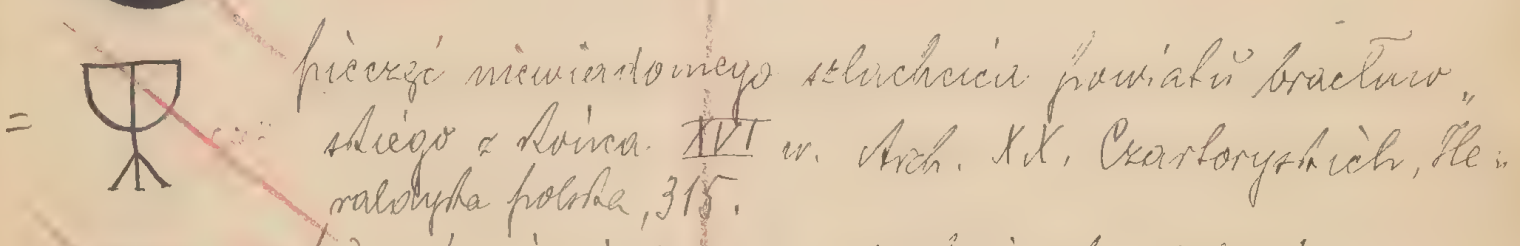 pieczęć niewiadomego szlachcica powiatu bracław„
skiego z końca XVI w. Arch. XX. Czartoryskich, He„
raldyka polska, 315.